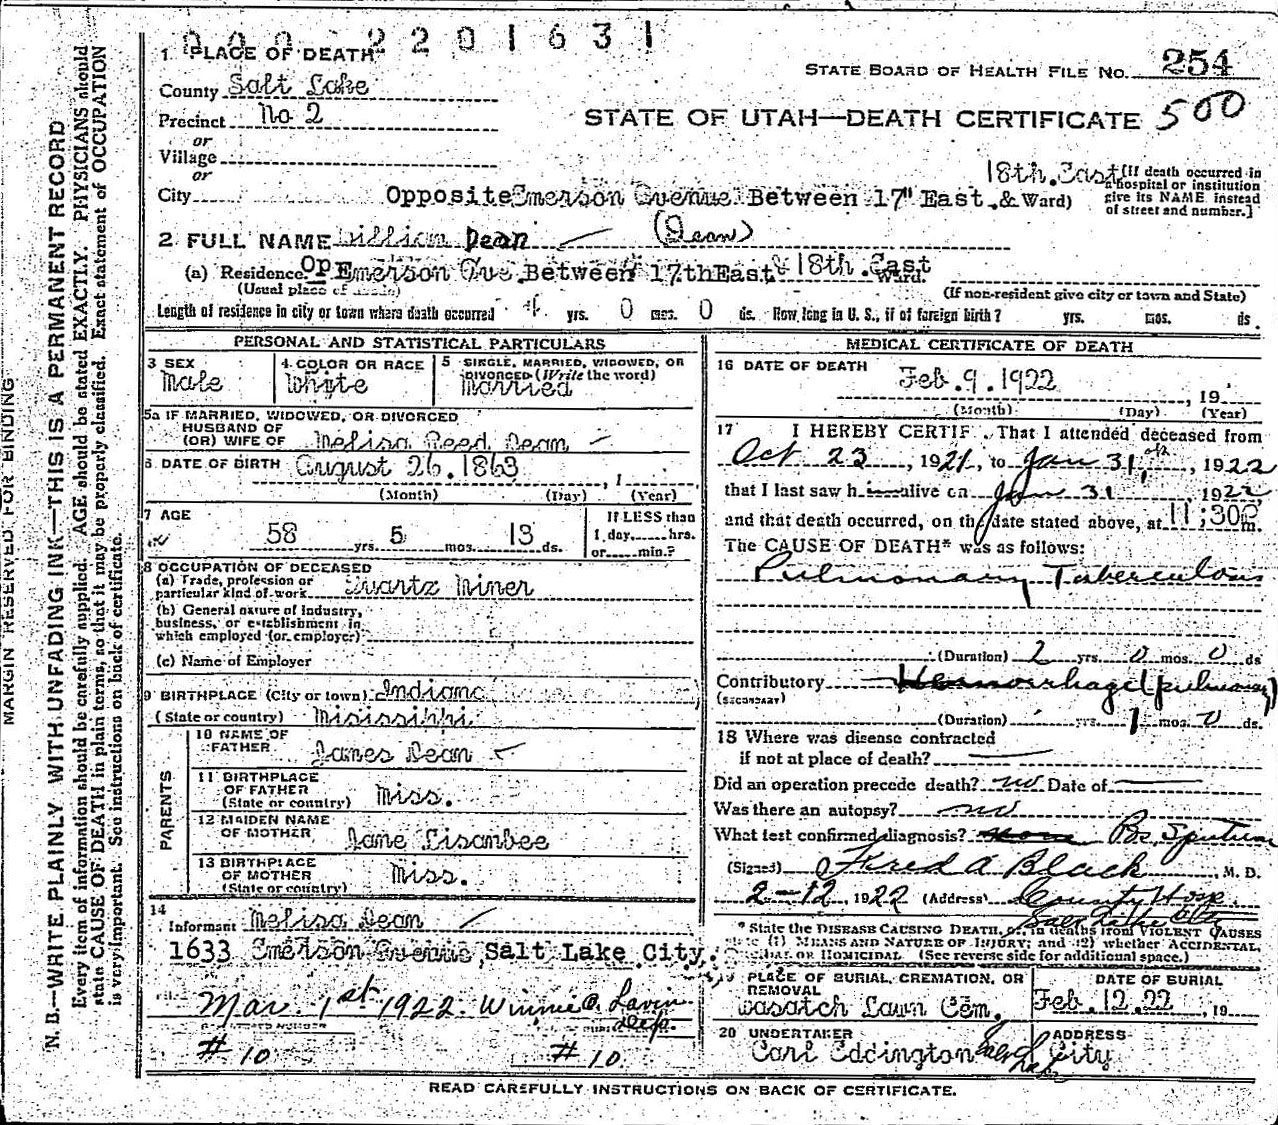 0 0 0 2 2 0 1 6 3 1
1 PLACE OF DEATH
STATE BOARD OF HEALTH FILE No. 254
County Salt Lake
Precinct No 2
STATE OF UTAH—DEATH CERTIFICATE 500
or
Village
or
City Opposite Emerson Avenue Between 17" East & 18th. East Ward)
[If death occurred in
a hospital or institution
give its NAME instead
of street and number.]
2 FULL NAME William Dean (Dean)
(a) Residence. Op Emerson Ave Between 17th East & 18th. East Ward.
(Usual place of
(If non-resident give city or town and State)
Length of residence in city or town where death occurred 4 yrs. 0 mos. 0 ds. How long in U. S., if of foreign birth? yrs. mos. ds.
PERSONAL AND STATISTICAL PARTICULARS
3 SEX Male
4 COLOR OR RACE White
5 SINGLE, MARRIED, WIDOWED, OR
DIVORCED (Write the word)
Married
5a IF MARRIED, WIDOWED, OR DIVORCED
HUSBAND OF
(OR) WIFE OF Melisa Reed Dean
6 DATE OF BIRTH August 26. 1863 , 1
(Month) (Day) (Year)
7 AGE 58 yrs. 5 mos. 13 ds.
If LESS than
1 day, hrs.
or min.?
8 OCCUPATION OF DECEASED
(a) Trade, profession or
particular kind of work Quartz Miner
(b) General nature of Industry,
business, or establishment in
which employed (or employer)
(c) Name of Employer
9 BIRTHPLACE (City or town) Indiano
(State or country) Mississippi
PARENTS
10 NAME OF
FATHER James Dean
11 BIRTHPLACE
OF FATHER
(State or country) Miss.
12 MAIDEN NAME
OF MOTHER Jane Lisanbee
13 BIRTHPLACE
OF MOTHER
(State or country) Miss.
14
Informant Melisa Dean
1633 Emerson Avenue, Salt Lake City.
Mar. 1st 1922. Winnie C. Lavin
Dep.
# 10 # 10
MEDICAL CERTIFICATE OF DEATH
16 DATE OF DEATH Feb. 9. 1922 , 19
(Month) (Day) (Year)
17 I HEREBY CERTIF , That I attended deceased from
Oct 23 , 1921, to Jan 31, , 1922
that I last saw him alive on Jan 31 , 1922,
and that death occurred, on the date stated above, at 11:30 P m.
The CAUSE OF DEATH* was as follows:
Pulmonary Tuberculosis
(Duration) 2 yrs. 0 mos. 0 ds
Contributory Hemorrhage (pulmonary)
(SECONDARY)
(Duration) yrs. 1 mos. 0 ds.
18 Where was disease contracted
if not at place of death?
Did an operation precede death? no Date of
Was there an autopsy? no
What test confirmed diagnosis? Bs. Sputum
(Signed) Fred A. Black , M. D.
2-12, 1922 (Address) County Hosp
Salt Lake City
* State the DISEASE CAUSING DEATH, or, in deaths from VIOLENT CAUSES
state (1) MEANS AND NATURE OF INJURY; and (2) whether ACCIDENTAL,
SUICIDAL OR HOMICIDAL (See reverse side for additional space.)
19 PLACE OF BURIAL, CREMATION, OR
REMOVAL
Wasatch Lawn Cem.
DATE OF BURIAL
Feb. 12. 22 , 19
20 UNDERTAKER
Carl Eddington
ADDRESS
Salt Lake City
READ CAREFULLY INSTRUCTIONS ON BACK OF CERTIFICATE.
MARGIN RESERVED FOR BINDING
N. B.—WRITE PLAINLY WITH UNFADING INK—THIS IS A PERMANENT RECORD
Every item of information should be carefully supplied. AGE should be stated EXACTLY. PHYSICIANS should
state CAUSE OF DEATH in plain terms, so that it may be properly classified. Exact statement of OCCUPATION
is very important. See instructions on back of certificate.